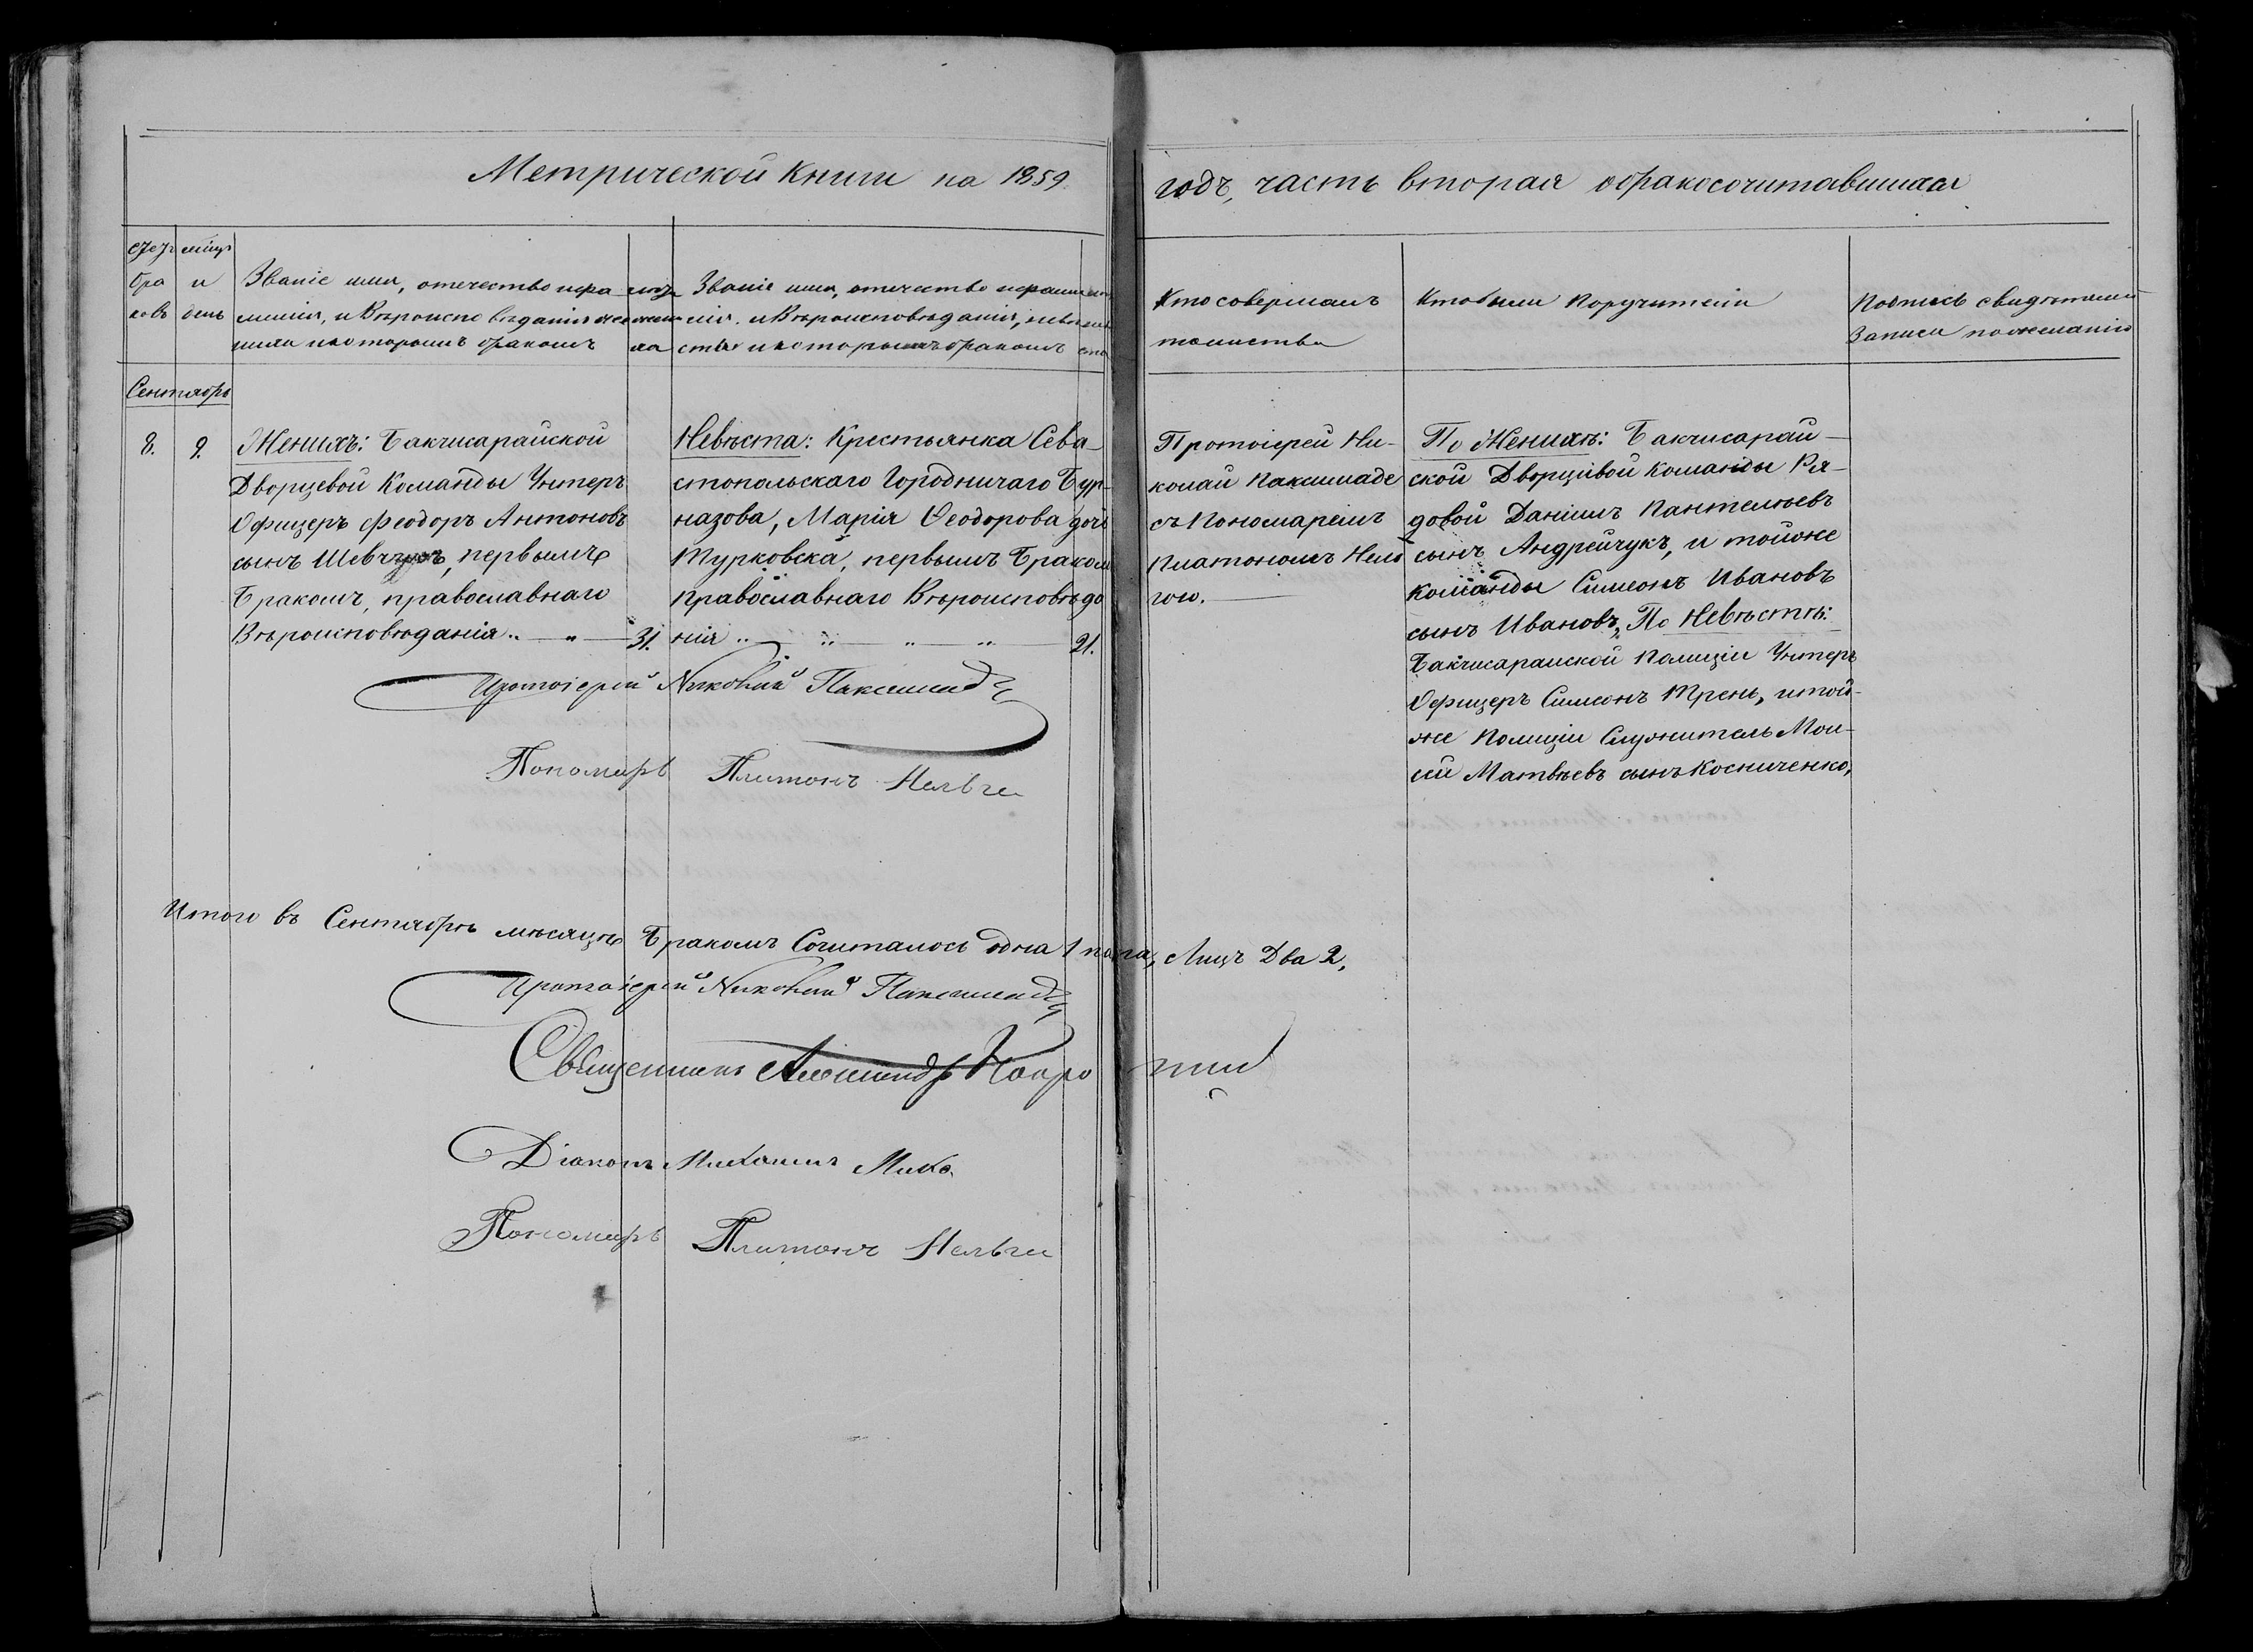 Метрической Книги на 1859.
годъ, часть вторая обракосочитавшихся
счетъ
бра
ковъ
мѣцъ
и
день
Званіе имя, отечество и фа
милія, и Вѣроисповѣданія же
ниха и которымъ бракомъ
лѣта
жени
ха
Званіе имя, отечество и фами
лія. и Вѣроисповѣданія, невѣ
сты и которымъ бракомъ
Кто совершалъ
таинства
Кто были Поручители
Подпись свидѣтелей
Записи по желанію
Сентябрь
8.
9.
Женихъ: Бакчисарайской
Дворцевой Команды Унтеръ
Офицеръ Феодоръ Антоновъ
сынъ, первымъ
Бракомъ, православнаго
Вѣроисповѣданія „ — „ — 31.
Невѣста: Крестьянка Сева-
стопольскаго Городничаго Бур-
назова, Марія Ѳеодорова дочь
Турковска, первымъ Бракомъ
православнаго Вѣроисповѣда
нія „ — „ — „ — „ — 21.
Протоіерей Ни-
колай Паксимаде
съ Пономаремъ
Платономъ Нель
гою.
По Женихѣ: Бакчисарай-
ской Дворцевой Команды Ря-
довой Даніилъ Пантелѣевъ
сынъ Андрейчукъ, и тойже
команды Симеонъ Ивановъ
сынъ Ивановъ, По Невѣстѣ:
Бакчисарайской Полиціи Унтеръ
Офицеръ Симеонъ Трень, и той-
же Полиціи Служитель Мои-
сей Матвѣевъ сынъ Косниченко,
Протоіерей Николай Паксимаде
Пономарь Платонъ Нельга
Итого въ Сентябрѣ мѣсяцѣ Бракомъ Сочиталось одна 1 пара, Лицъ Два 2,
Протоіерей Николай Паксимаде
Священникъ Александр
Діаконъ Михаилъ Миха
Пономарь Платонъ Нельга